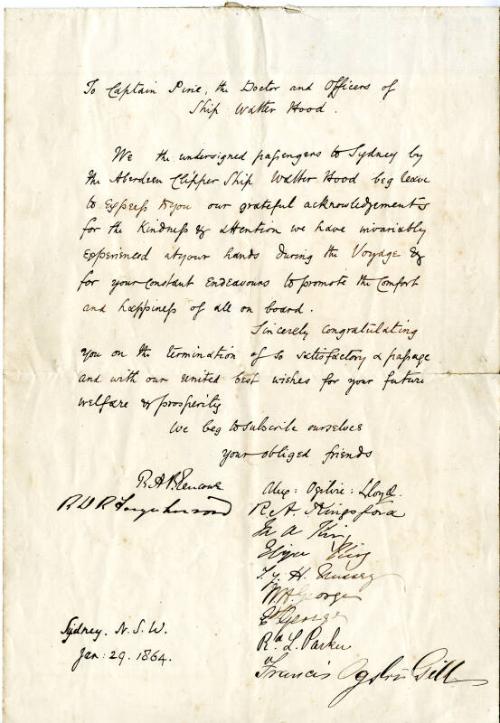 To Captain Pirie, the Doctor and Officers of
Ship Walter Hood.
We the undersigned passengers to Sydney by
the Aberdeen Clipper Ship Walter Hood beg leave
to express to you our grateful acknowledgements
for the kindness & attention we have invariably
experienced at your hands during the Voyage &
for your constant endeavours to promote the comfort
and happiness of all on board.
Sincerely congratulating
you on the termination of so satisfactory a passage
and with our united best wishes for your future
welfare & prosperity
We beg to subscribe ourselves
your obliged friends
Alex: Ogilvie: Lloyd.
R. A. Kingsford
King
W. H. George
George
L. Parker
Francis Ogden Gill
Sydney. N. S. W.
Jan: 29. 1864.